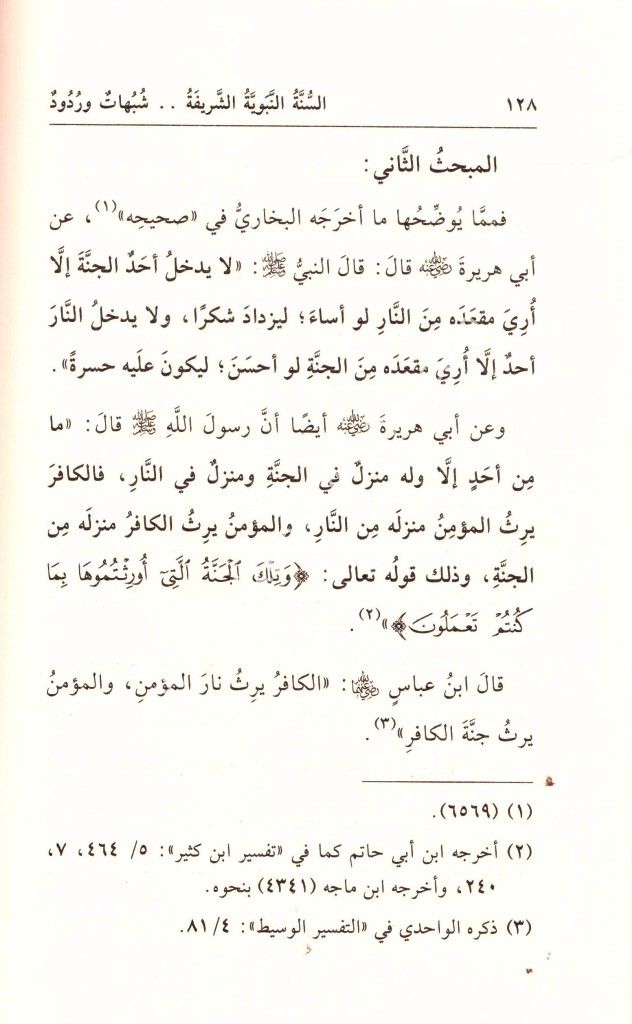 ١٢٨ السُّنَّةُ النَّبَوِيَّةُ الشَّرِيفَةُ .. شُبُهاتٌ ورُدُودٌ
المبحثُ الثَّاني:
فممَّا يُوضِّحُها ما أخرَجَه البخاريُّ في «صحيحِه»(١)، عن
أبي هريرةَ رضي الله عنه قالَ: قالَ النبيُّ ﷺ: «لا يدخلُ أحَدٌ الجنَّةَ إلَّا
أُرِيَ مقعَدَه مِنَ النَّارِ لو أساءَ؛ ليزدادَ شكرًا، ولا يدخلُ النَّارَ
أحدٌ إلَّا أُرِيَ مقعَدَه مِنَ الجنَّةِ لو أحسَنَ؛ ليكونَ علَيه حسرةً».
وعن أبي هريرةَ رضي الله عنه أيضًا أنَّ رسولَ اللَّهِ ﷺ قالَ: «ما
مِن أحَدٍ إلَّا وله منزلٌ في الجنَّةِ ومنزلٌ في النَّارِ، فالكافرَ
يرِثُ المؤمِنُ منزلَه مِن النَّارِ، والمؤمنُ يرِثُ الكافرُ منزلَه مِن
الجنَّةِ، وذلك قولُه تعالى: ﴿وَتِلْكَ ٱلْجَنَّةُ ٱلَّتِىٓ أُورِثْتُمُوهَا بِمَا
كُنتُمْ تَعْمَلُونَ﴾»(٢).
قالَ ابنُ عباسٍ رضي الله عنهما: «الكافرُ يرِثُ نارَ المؤمنِ، والمؤمنُ
يرثُ جنَّةَ الكافرِ»(٣).
(١) (٦٥٦٩).
(٢) أخرجه ابن أبي حاتم كما في «تفسير ابن كثير»: ٥/ ٤٦٤، ٧،
٢٤٠، وأخرجه ابن ماجه (٤٣٤١) بنحوه.
(٣) ذكره الواحدي في «التفسير الوسيط»: ٤/ ٨١.